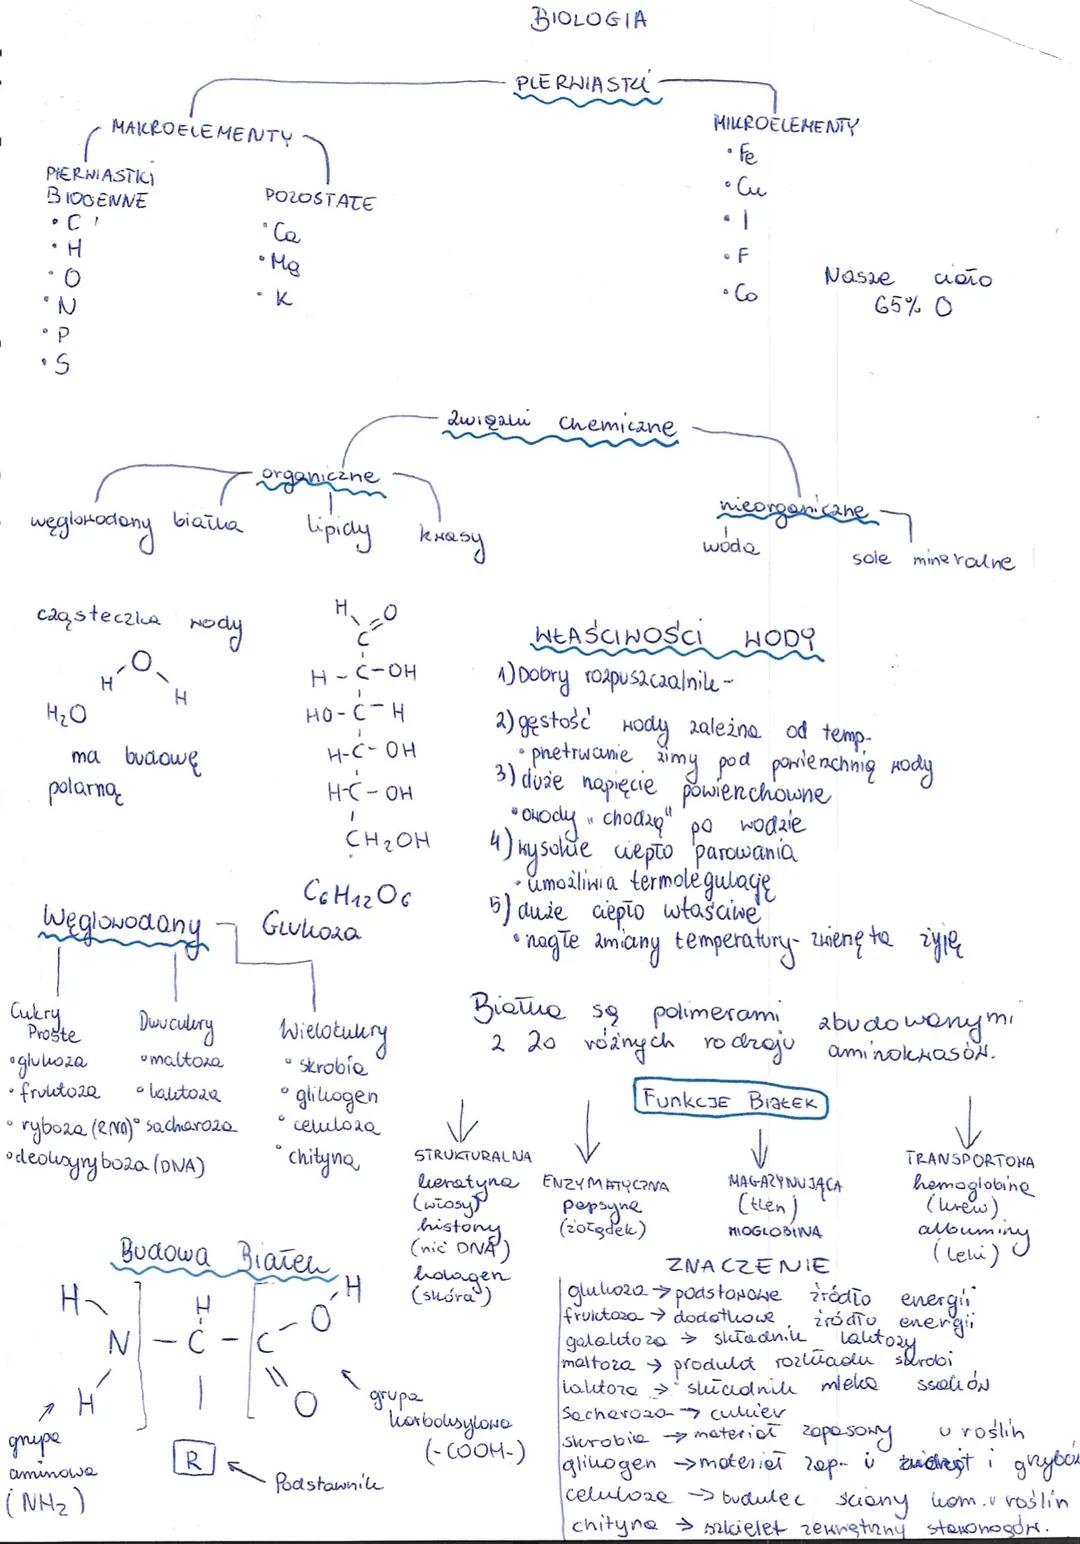 BIOLOGIA
PIERWIASTKI
MAKROELEMENTY
MIKROELEMENTY
PIERWIASTKI
BIOGENNE
• C
• H
• O
• N
• P
• S
POZOSTAŁE
• Ca
• Mg
• K
• Fe
• Cu
• I
• F
• Co
Nasze ciało
65% O
związki chemiczne
organiczne
węglowodany białka lipidy kwasy
nieorganiczne
woda
sole mineralne
cząsteczka wody
O
H H
H₂O
ma budowę
polarną
H O
C
H - C - OH
HO - C - H
H - C - OH
H - C - OH
CH₂OH
C₆H₁₂O₆
Glukoza
WŁAŚCIWOŚCI WODY
1) Dobry rozpuszczalnik -
2) gęstość wody zależna od temp.
• przetrwanie zimy pod powierzchnią wody
3) duże napięcie powierzchowne
• owady "chodzą" po wodzie
4) wysokie ciepło parowania
• umożliwia termoregulację
5) duże ciepło właściwe
• nagłe zmiany temperatury - zwierzęta żyją
Węglowodany
Cukry
Proste
• glukoza
• fruktoza
• ryboza (RNA)
• deoksyryboza (DNA)
Dwucukry
• maltoza
• laktoza
• sacharoza
Wielocukry
• skrobia
• glikogen
• celuloza
• chityna
Białka są polimerami zbudowanymi
z 20 różnych rodzaju aminokwasów.
FUNKCJE BIAŁEK
STRUKTURALNA
keratyna
(włosy)
histony
(nić DNA)
kolagen
(skóra)
ENZYMATYCZNA
pepsyna
(żołądek)
MAGAZYNUJĄCA
(tlen)
MIOGLOBINA
TRANSPORTOWA
hemoglobina
(krew)
albuminy
(leki)
Budowa Białek
H H H
N - C - C - O
H O
R
grupa
aminowa
(NH₂)
Podstawnik
grupa
karboksylowa
(-COOH-)
ZNACZENIE
glukoza → podstawowe źródło energii
fruktoza → dodatkowe źródło energii
galaktoza → składnik laktozy
maltoza → produkt rozkładu skrobi
laktoza → składnik mleka ssaków
Sacharoza → cukier
skrobia → materiał zapasowy u roślin
glikogen → materiał zap. u zwierząt i grzybów
celuloza → budulec ściany kom. u roślin
chityna → szkielet zewnętrzny stawonogów.